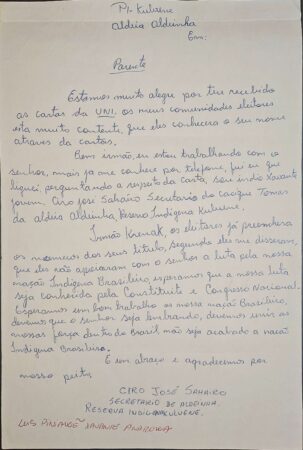 PI- Kuluene
Aldeia Aldeinha
Em:
Parente
Estamos muito alegre por ter recebido
as cartas da UNI, os meus comunidades eleitores
esta muito contente, que eles conhecera o seu nome
através da cartas.
Bom irmão, eu estou trabalhando com o
senhor, mais ja me conhece por telefone, fui eu que
liguei perguntando a respeito da carta, sou indio Xavante
jovem. Ciro Jose Sahairo Secretario do cacique Tomas
da aldeia Aldeinha Reserva Indigena Kuluene.
Irmão Krenak, os eleitores já preenchera
os numeros dos seus titulo, segundo eles me disseram,
que eles não apoiaram com o senhor a luta pela nossa
nação Indigena Brasileiro, esperamos que a nossa luta
seja conhecida pela Constituinte e Congresso Nacional.
Esperamos um bom trabalho os nossa nação Brasileiro,
desejamos que o senhor seja lembrando, devemos unir as
nossas força dentro do Brasil não seja acabado a nação
Indigena Brasileira.
E um abraço e agradecemos por
nosso
CIRO JOSÉ SAHAIRO
SECRETARIO DE ALDEINHA.
RESERVA INDIGENA KULUENE.
LUIS XAVANTE